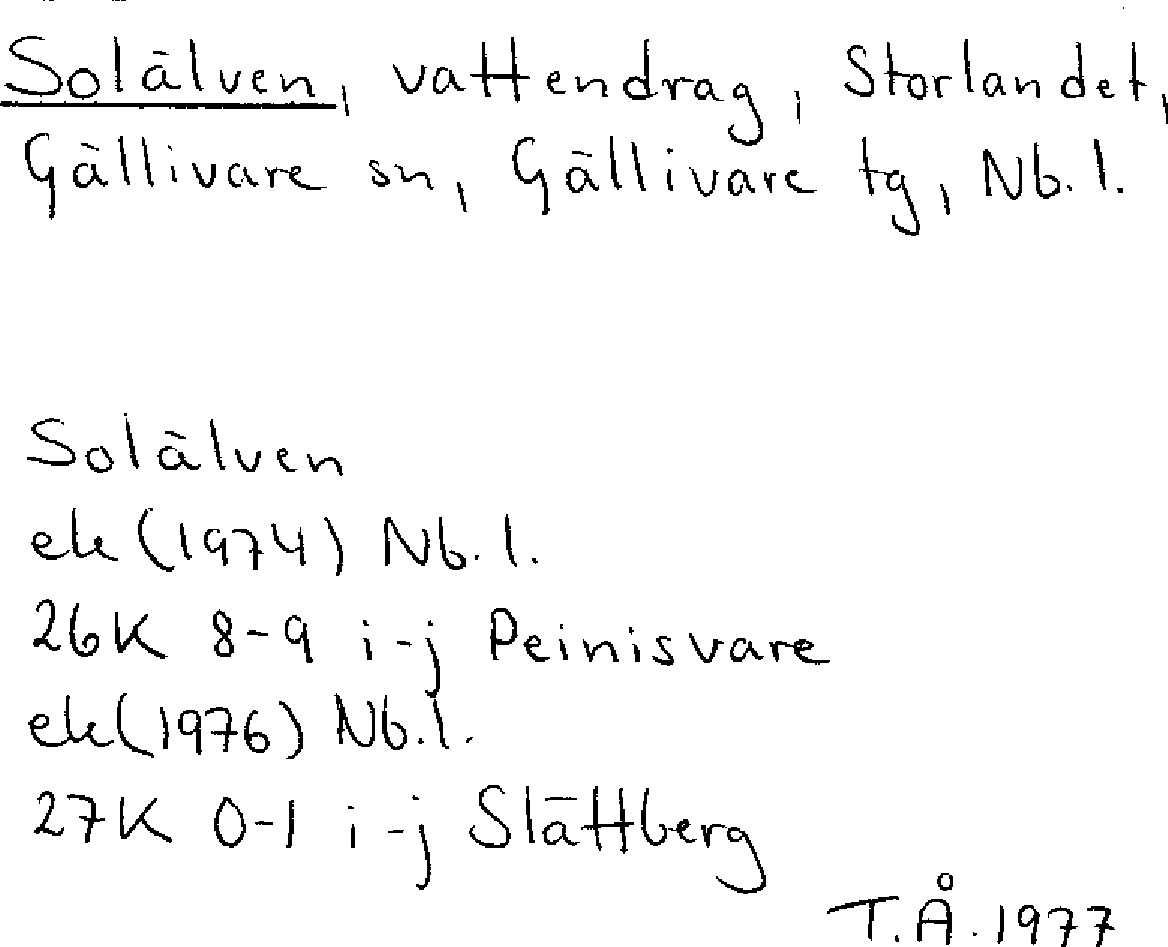 Solälven, vattendrag, Storlandet,
Gällivare sn, Gällivare tg, Nb. l.
Solälven
ek (1974) Nb. l.
26K 8-9 i-j Peinisvare
ek (1976) Nb. l.
27K 0-1 i-j Slättberg
T.Å. 1977